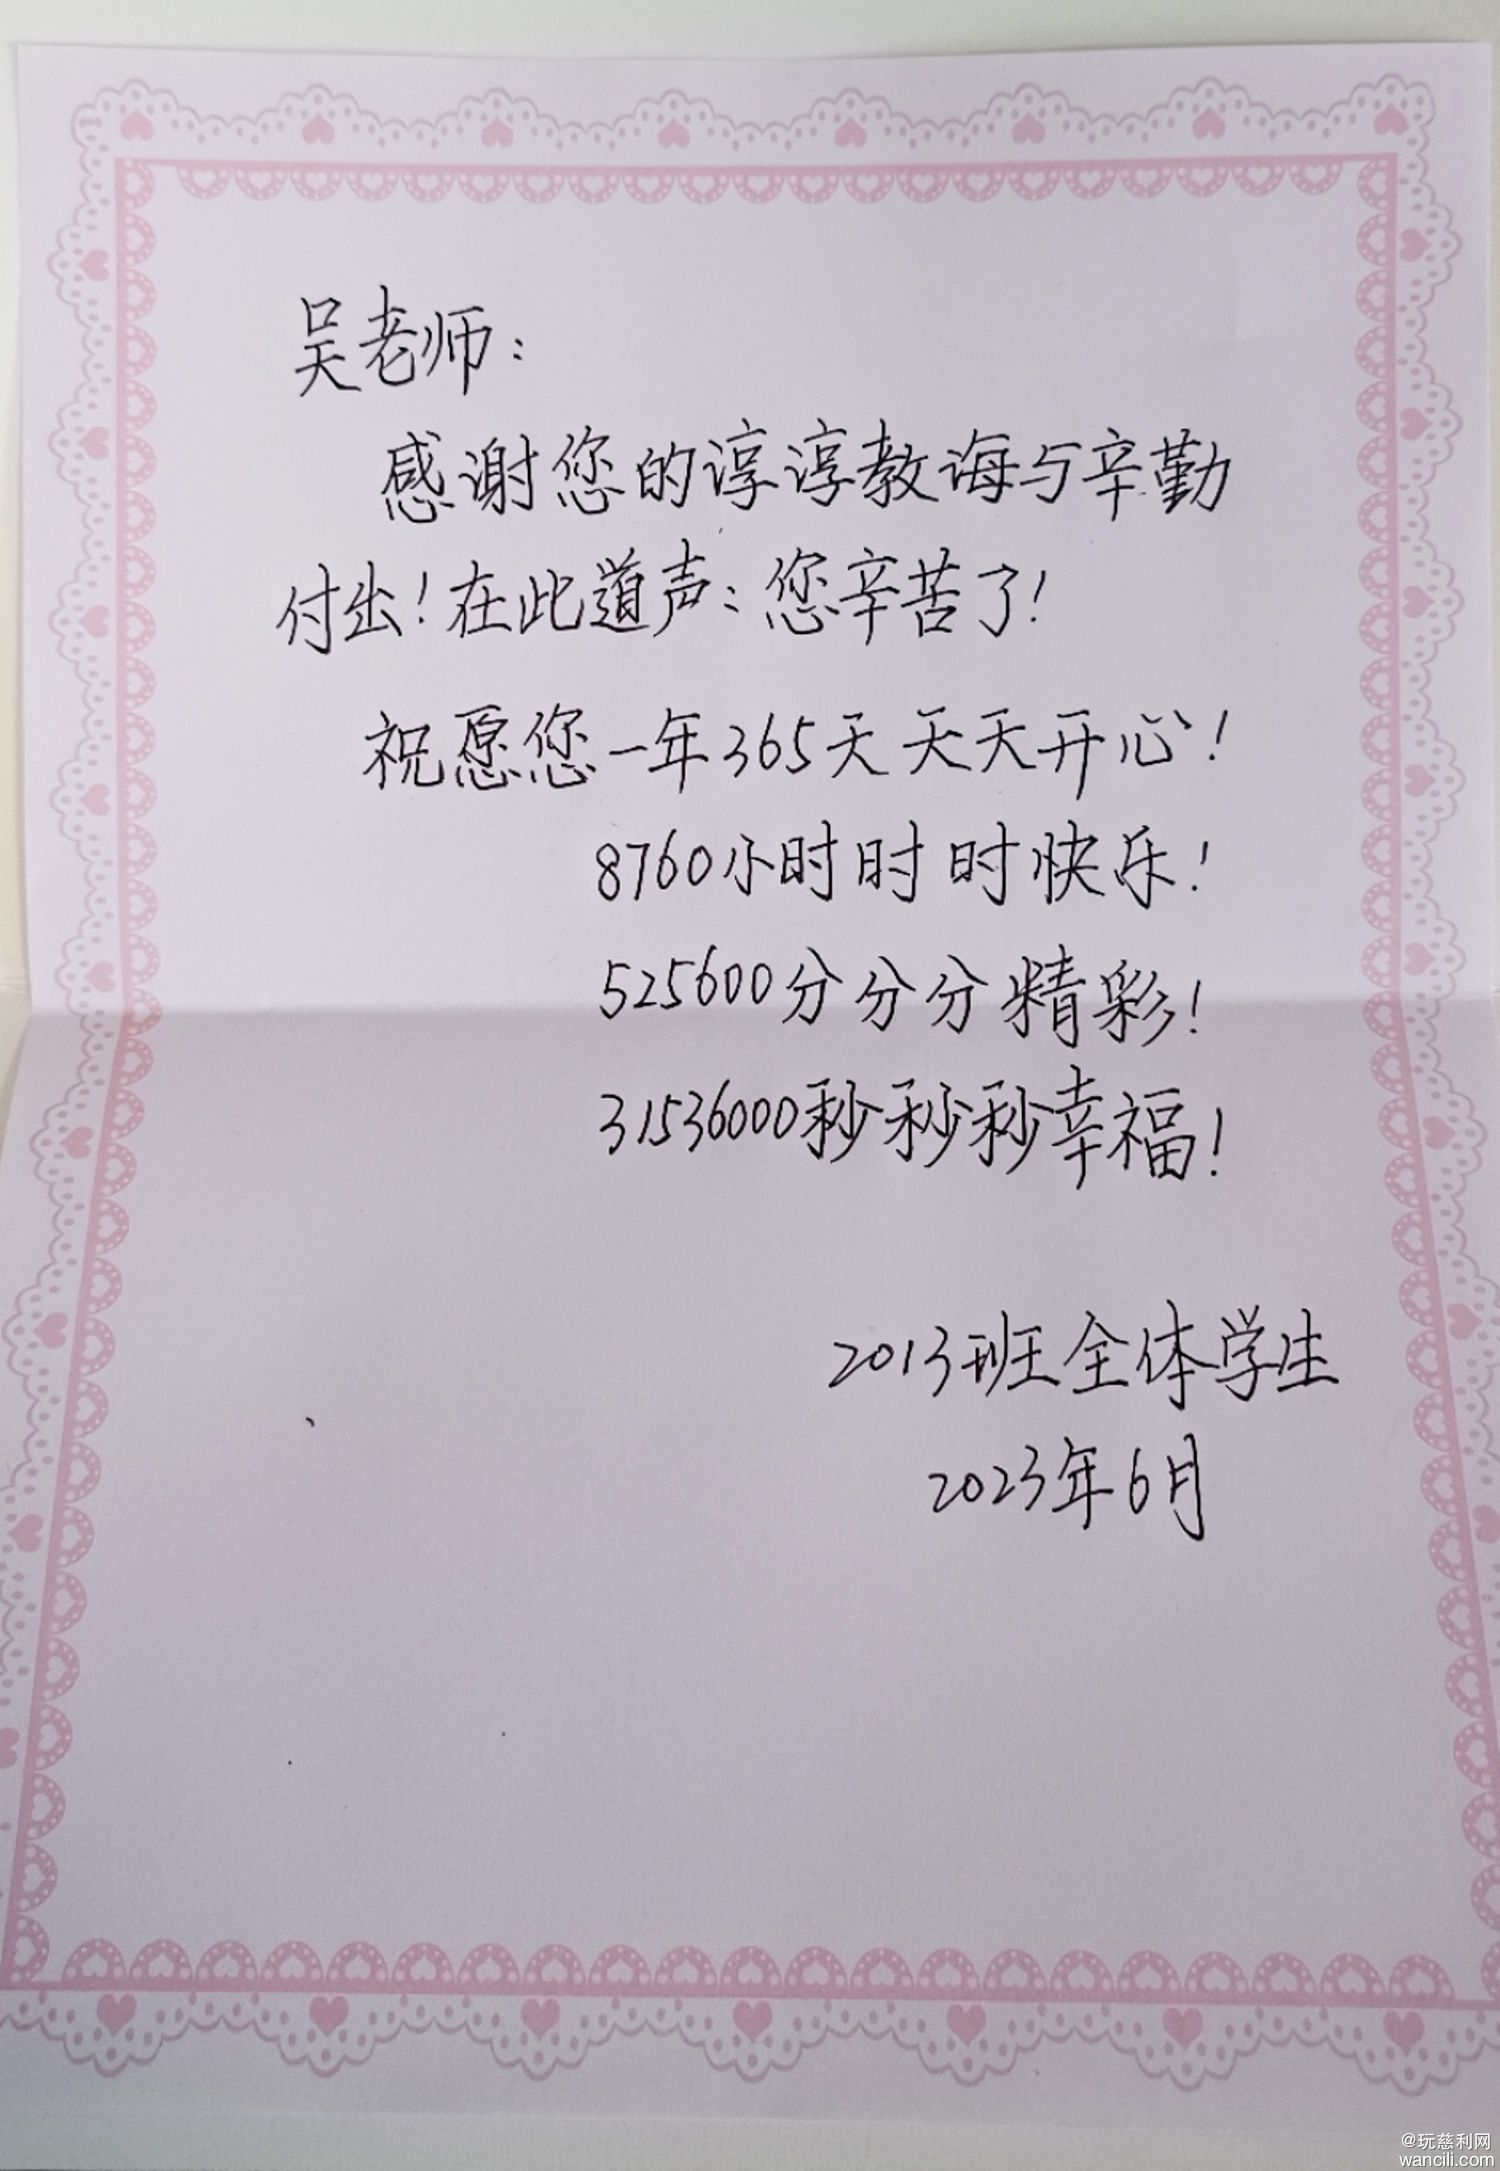 吴老师：
感谢您的谆谆教诲与辛勤
付出！在此道声：您辛苦了！
祝愿您一年365天天天开心！
8760小时时时快乐！
525600分分分精彩！
31536000秒秒秒幸福！
2013班全体学生
2023年6月
@玩慈利网
wancili.com